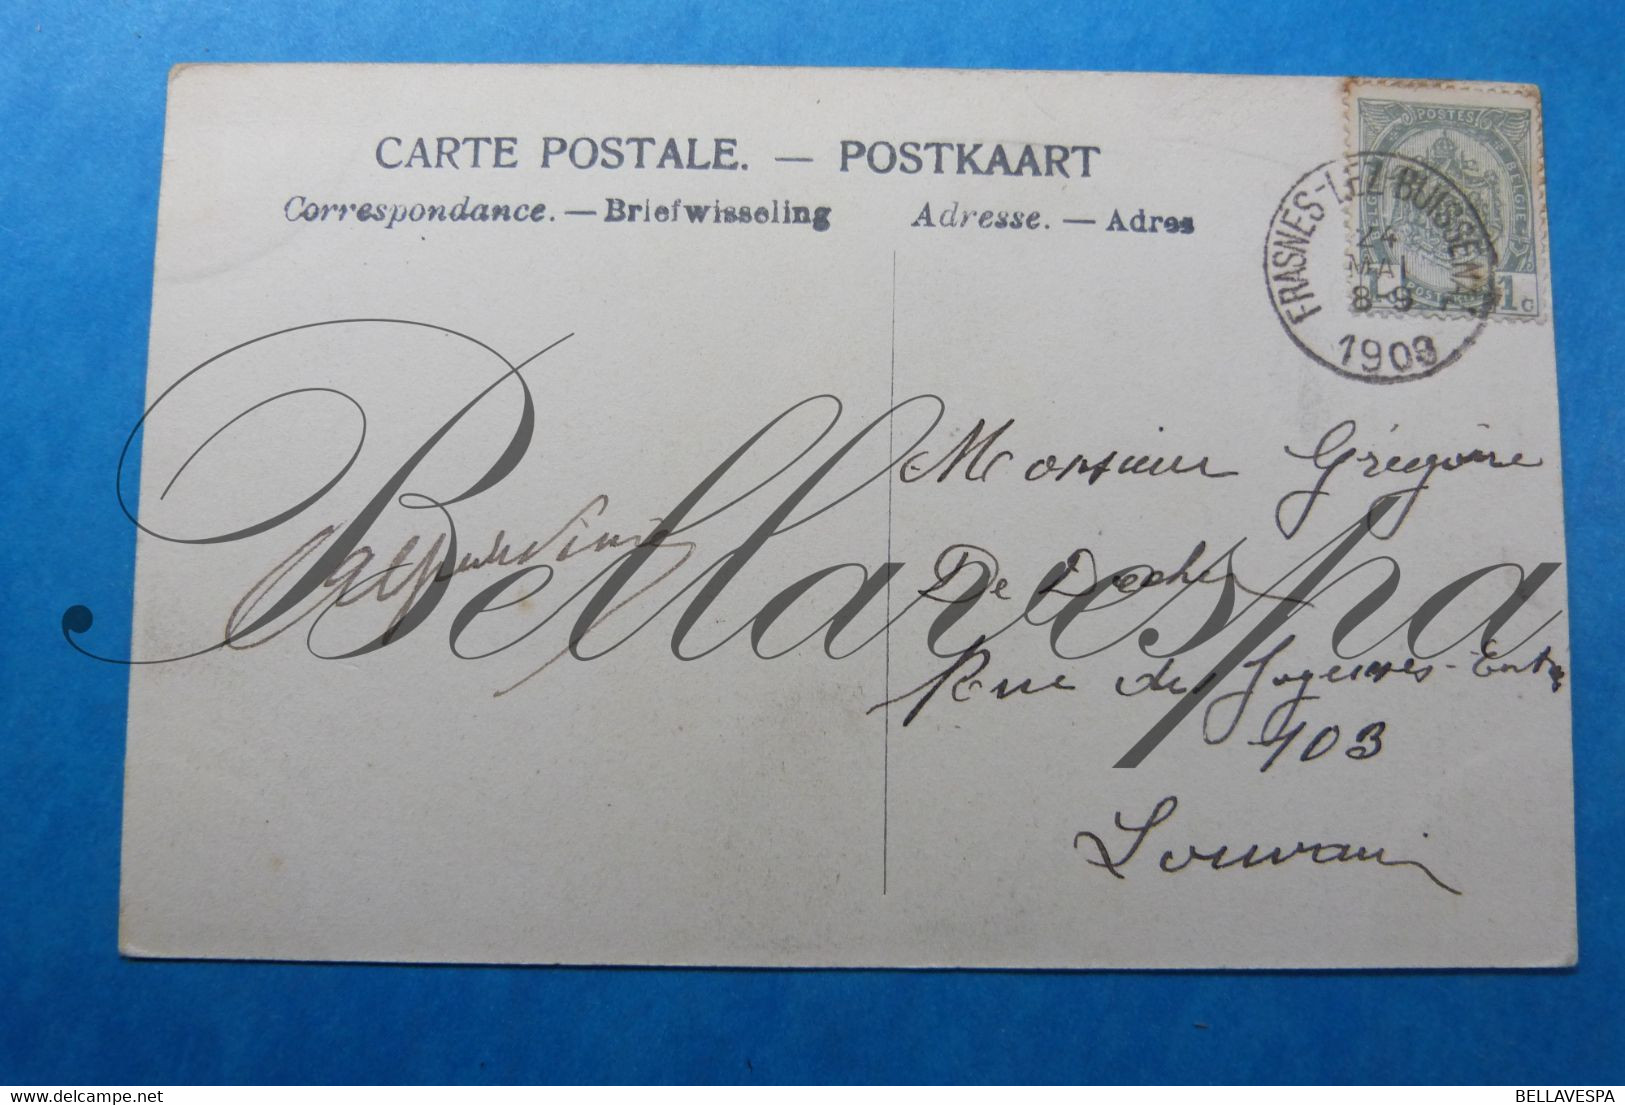 CARTE POSTALE. — POSTKAART
Correspondance. — Briefwisseling
Adresse. — Adres
POSTES
BELGIE
1 C
FRASNES-LEZ-BUISSENAL
24
MAI
8-9
1909
Monsieur Grégoire
De
Rue des Joyeuses-Entrées
103
Louvain
Bellavespa
delcampe.net
BELLAVESPA